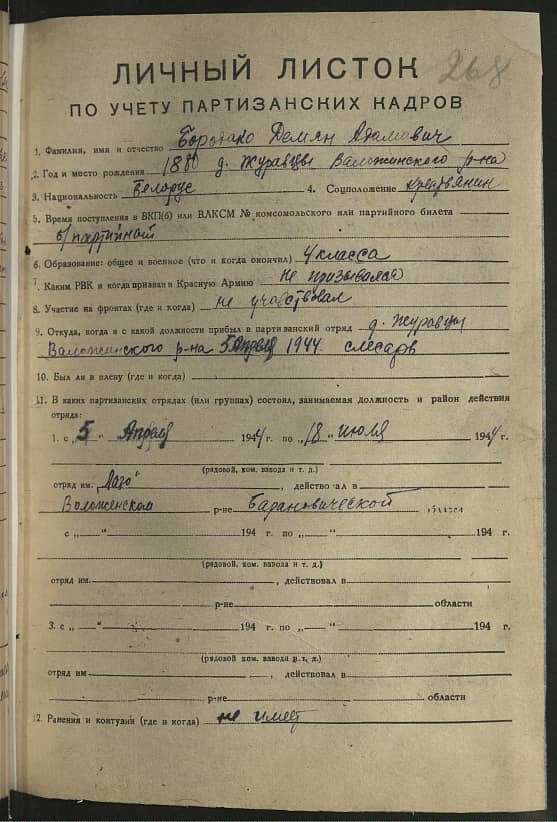 268
ЛИЧНЫЙ ЛИСТОК
ПО УЧЕТУ ПАРТИЗАНСКИХ КАДРОВ
1. Фамилия, имя и отчество Демян Адамович
2. Год и место рождения д. Журавцы Валожинского р-на
3. Национальность белорус 4. Соцположение крестьянин
5. Время поступления в ВКП(б) или ВЛКСМ № комсомольского или партийного билета
б/партийный
6. Образование: общее и военное (что и когда окончил) 4 класса
7. Каким РВК и когда призван в Красную Армию не призывался
8. Участие на фронтах (где и когда) не участвовал
9. Откуда, когда и с какой должности прибыл в партизанский отряд д. Журавцы
Валожинского р-на 5 Апреля 1944 слесарь
10. Был ли в плену (где и когда)
11. В каких партизанских отрядах (или группах) состоял, занимаемая должность и район действия
отряда:
1. с „5" Апреля 1944 г. по „18" июля 1944 г.
(рядовой, ком. взвода и т. д.)
отряд им. „Лазо" , действовал в
Воложенском р-не Барановической области
с „ — " 194 г. по „ — " 194 г.
(рядовой, ком. взвода и т. д.)
отряд им. , действовал в
р-не области
3. с „ — " 194 г. по „ — " 194 г.
(рядовой, ком. взвода и т. д.)
отряд им , действовал в
р-не области
12. Ранения и контузии (где и когда) не имеет